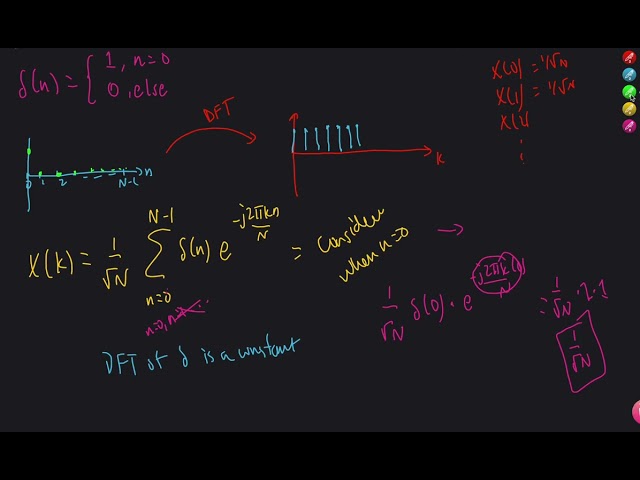 δ(n) = { 1, n=0
0, else
DFT
X(0) = 1/√N
X(1) = 1/√N
X(2)
⋮
0 1 2 N-1 n
k
X(k) = 1/√N Σ_{n=0}^{N-1} δ(n) e^{-j2πkn/N} = consider when n=0 →
n=0, n
1/√N δ(0) · e^{-j2πk(0)/N} = 1/√N · 1 · 1
1/√N
DFT of δ is a constant